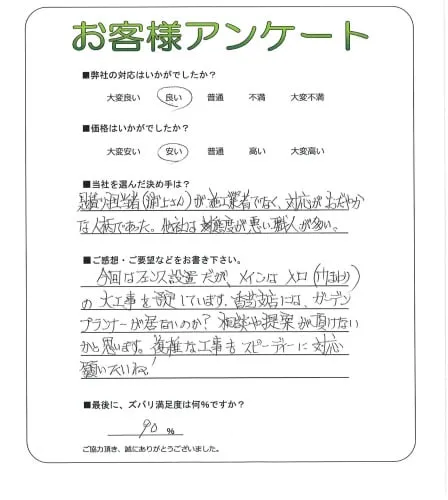 お客様アンケート
■弊社の対応はいかがでしたか?
大変良い 良い 普通 不満 大変不満
■価格はいかがでしたか?
大変安い 安い 普通 高い 大変高い
■当社を選んだ決め手は?
見積り担当者(浦上さん)が施工業者でなく、対応がおだやか
な人柄であった。他社は対態度が悪い職人が多い。
■ご感想・ご要望などをお書き下さい。
今回はフェンス設置だが、メインは入口
の大工事を予定しています。当支店には、ガーデン
プランナーが居ないのか?相談や提案が頂けない
かと思います。複雑な工事もスピーディーに対応
願いたいね!
■最後に、ズバリ満足度は何%ですか?
90 %
ご協力頂き、誠にありがとうございました。